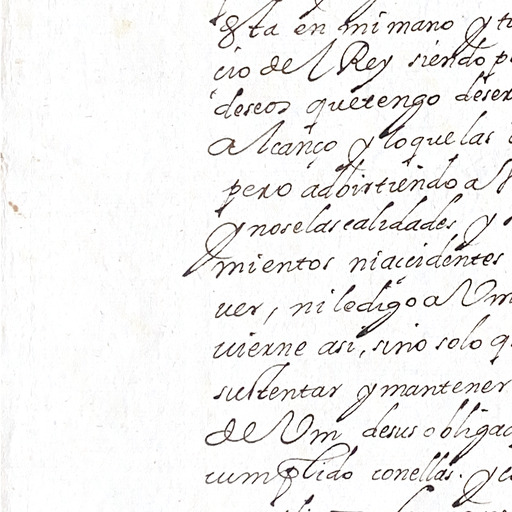 esta en mi mano y t
cio del Rey siendo p
deseos que tengo deser
alcanço y lo que las
pero adbirtiendo a V
y no se las calidades, y
mientos ni accidentes
uer, ni lo digo a Vm
uierne asi, sino solo q
sustentar y mantener
de Vm desus obligac
cumplido conellas. y c